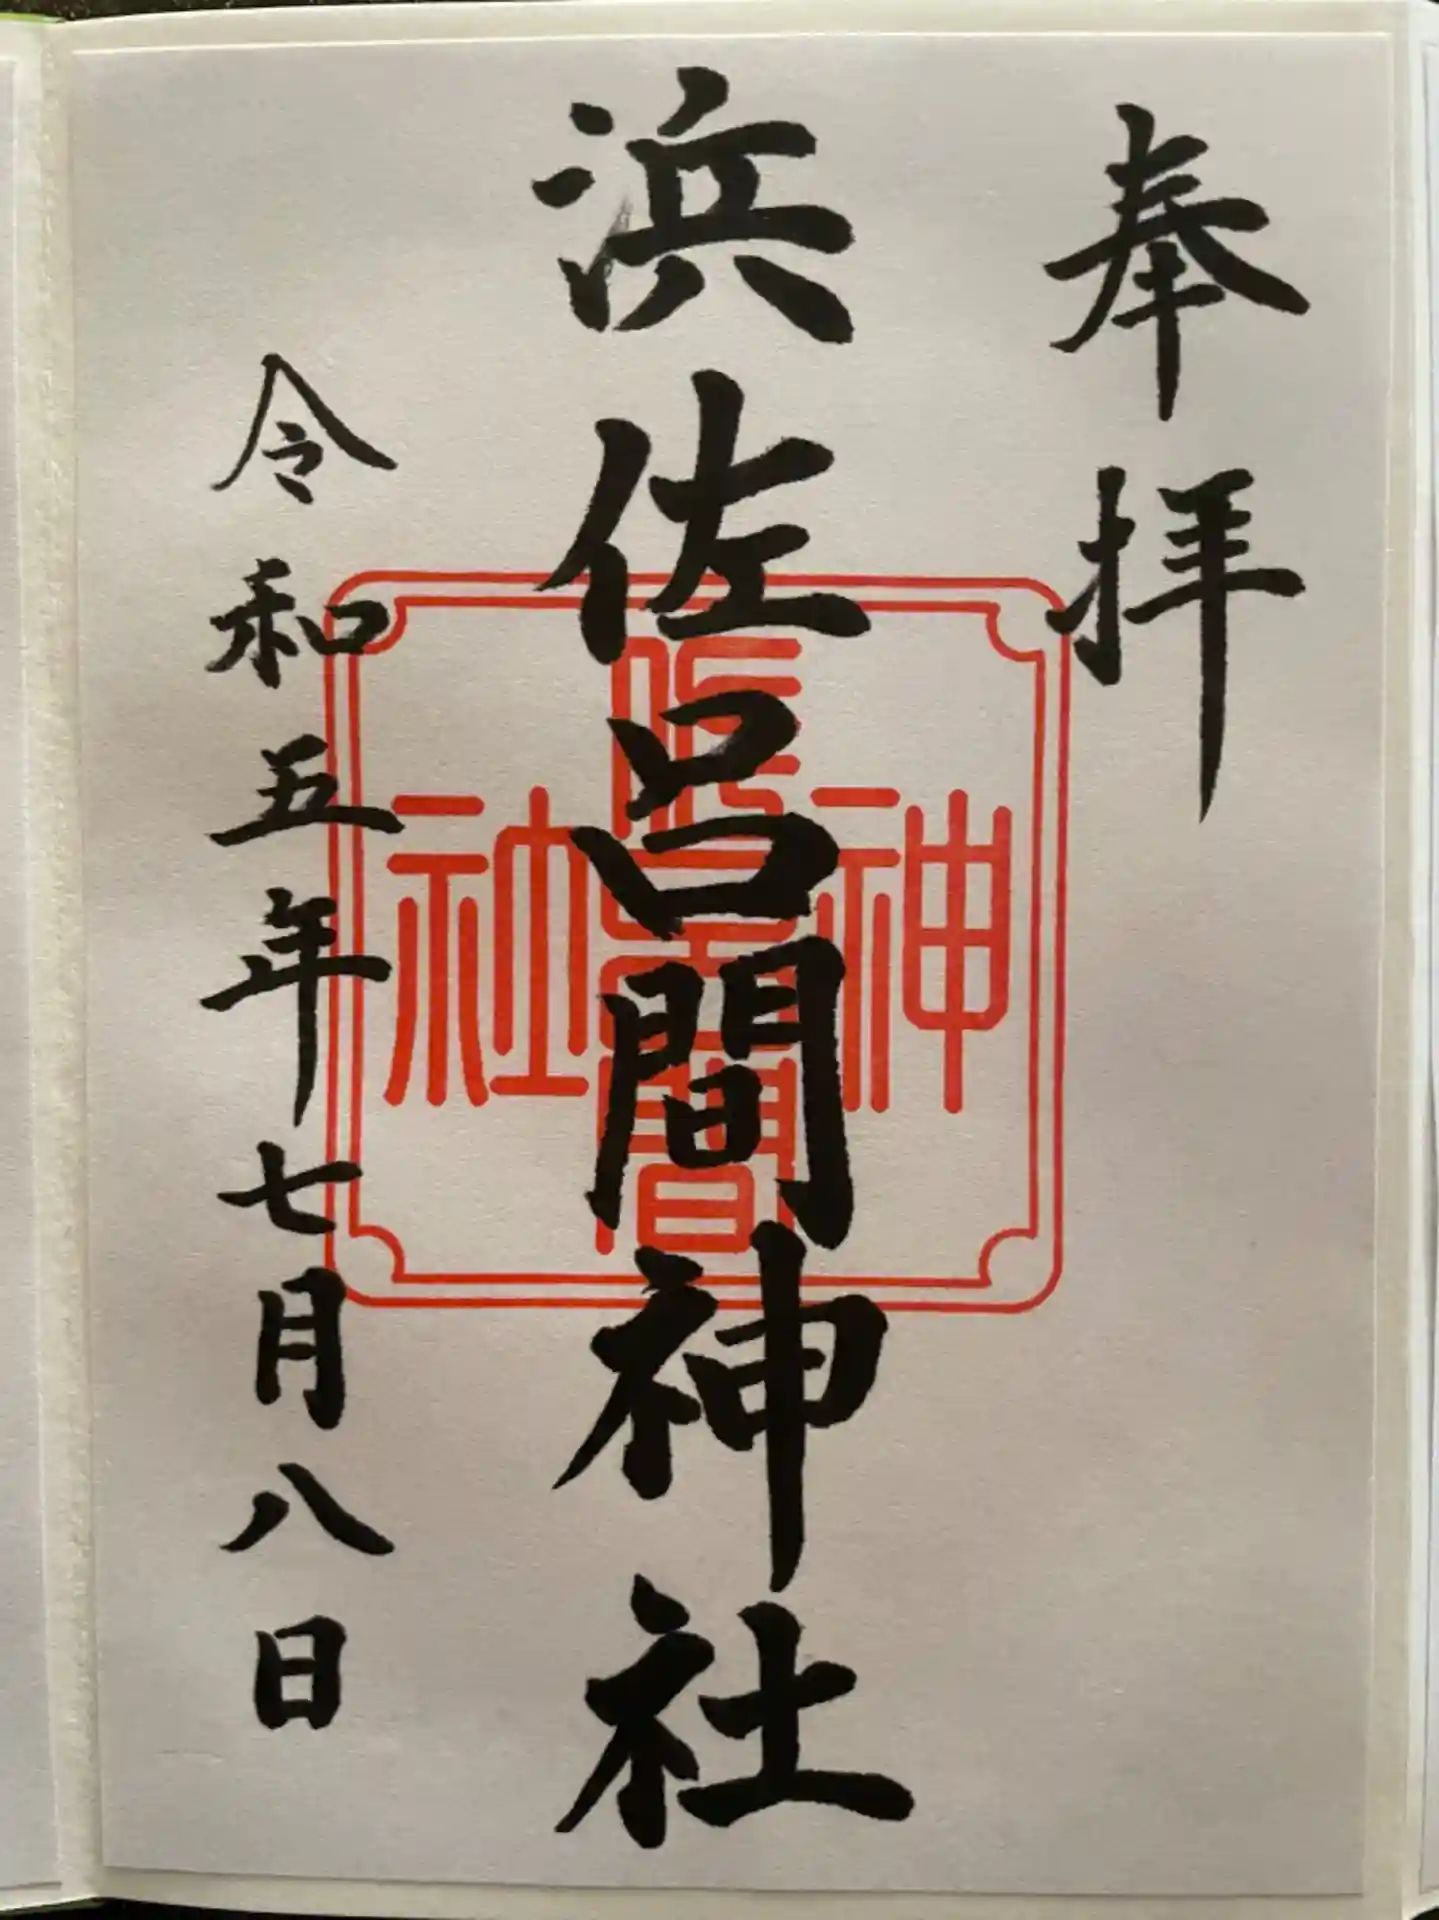 奉拝
浜佐呂間神社
令和五年七月八日
神
社